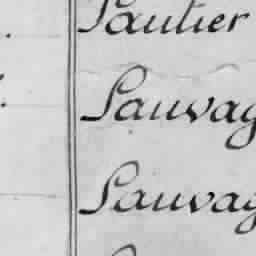 Sautier
Sauvag
Sauvag